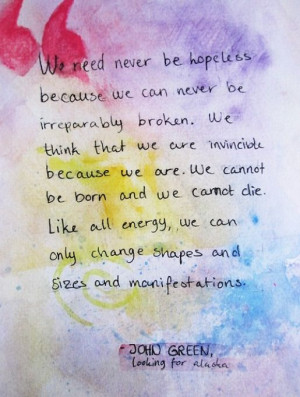 We need never be hopeless
because we can never be
irreparably broken. We
think that we are invincible
because we are. We cannot
be born and we cannot die.
Like all energy, we can
only change shapes and
sizes and manifestations.
JOHN GREEN,
looking for alaska